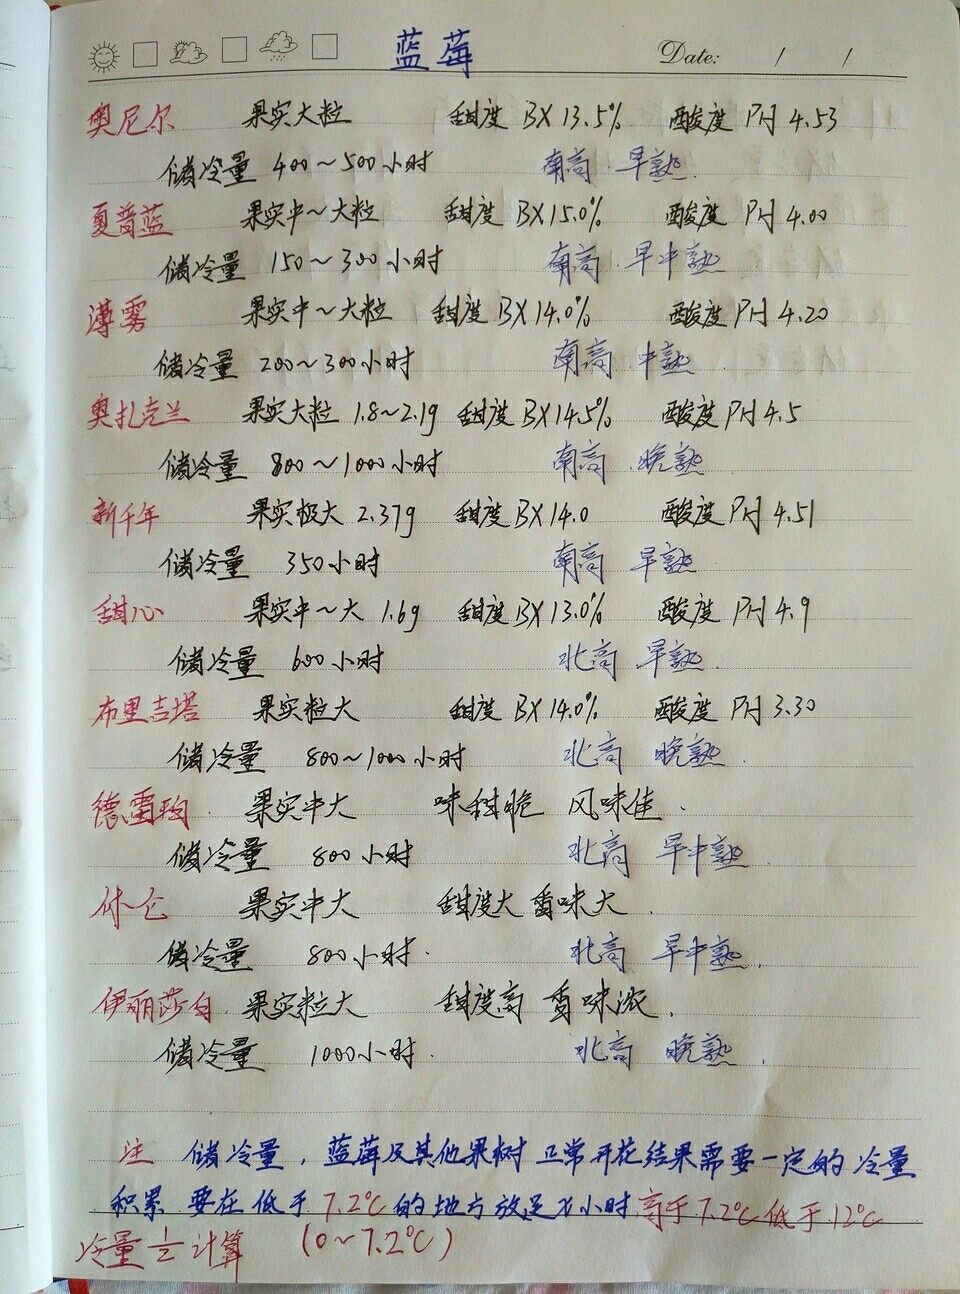 蓝莓 Date: / /
奥尼尔 果实大粒 甜度 BX 13.5% 酸度 PH 4.53
储冷量 400~500小时 南高 早熟
夏普蓝 果实中~大粒 甜度 BX15.0% 酸度 PH 4.00
储冷量 150~300小时 南高 早中熟
薄雾 果实中~大粒 甜度BX14.0% 酸度PH 4.20
储冷量 200~300小时 南高 中熟
奥扎克兰 果实大粒 1.8~2.1g 甜度BX14.5% 酸度PH4.5
储冷量 800~1000小时 南高 晚熟
新千年 果实极大 2.37g 甜度BX14.0 酸度PH4.51
储冷量 350小时 南高 早熟
甜心 果实中~大 1.6g 甜度BX13.0% 酸度 PH4.9
储冷量 600小时 北高 早熟
布里吉塔 果实粒大 甜度BX14.0% 酸度PH3.30
储冷量 800~1000小时 北高 晚熟
德雷珀 果实中大 味甜脆 风味佳.
储冷量 800小时 北高 早中熟
休仑 果实中大 甜度大 香味大.
储冷量 800小时. 北高 早中熟.
伊丽莎白 果实粒大 甜度高 香味浓.
储冷量 1000小时. 北高 晚熟.
注 储冷量，蓝莓及其他果树 正常开花结果需要一定的冷量
积累 要在低于7.2℃的地方放足X小时 高于7.2℃低于12℃
冷量½计算 (0~7.2℃)